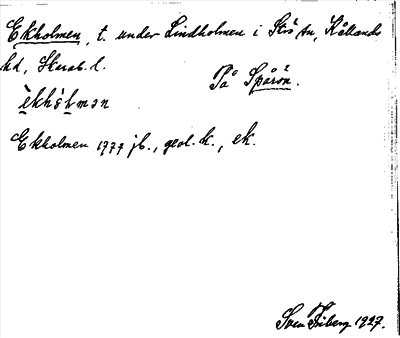 Ekholmen, t. under Lindholmen i Strö sn, Kållands
hd, Skarab. l.
På Spårön.
èkhòlmən
Ekholmen 1977 jb., geol. k., ek.
Sven Friberg 1927.